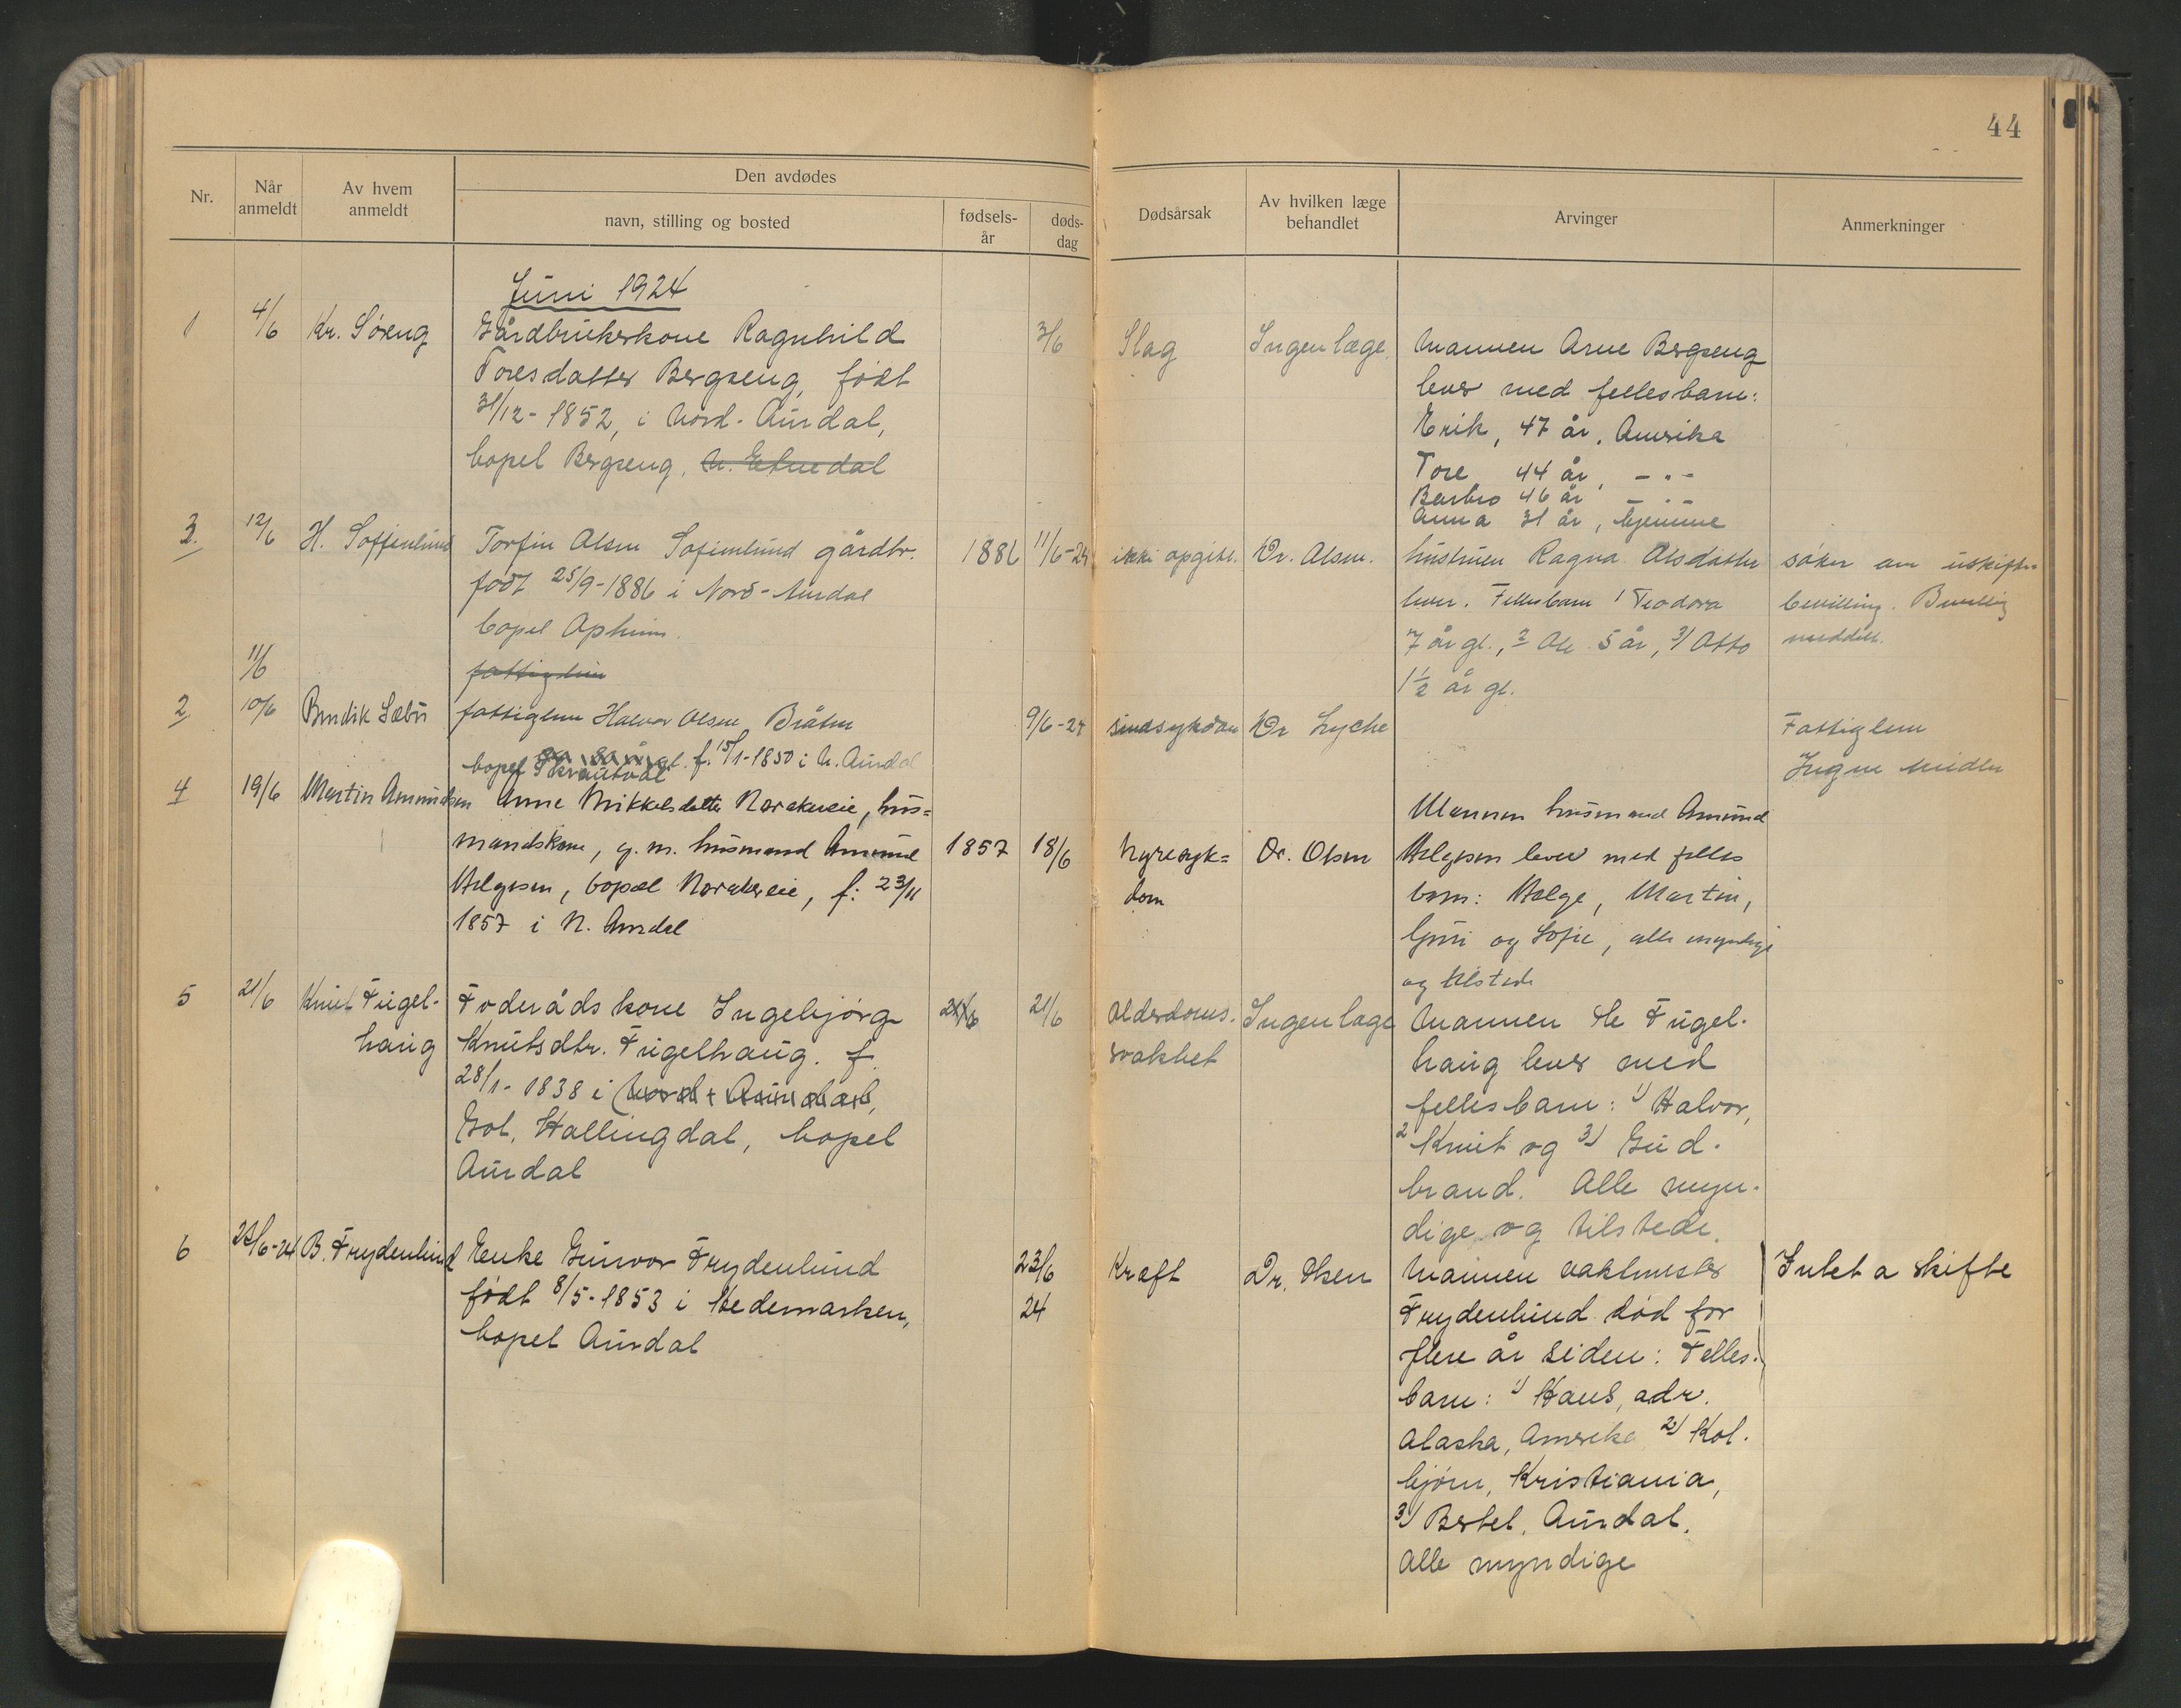 44
Nr.
Når anmeldt
Av hvem anmeldt
Den avdødes
navn, stilling og bosted
fødsels-år
døds-dag
Dødsårsak
Av hvilken læge behandlet
Arvinger
Anmerkninger
Juni 1924
1
4/6
Kr. Søreng
Gårdbrukerkone Ragnhild
Toresdatter Bergseng, født
31/12-1852, i Nord-Aurdal,
bopel Bergseng, N. Etnedal
3/6
Slag
Ingen læge.
Mannen Arne Bergseng
lever med fellesbarn:
Erik, 47 år, Amerika
Tore 44 år, - " -
Barbro 46 år - " -
Anna 31 år, hjemme
3.
12/6
H. Soffienlund
Torfin Olsen Sofienlund gårdbr.
født 25/9-1886 i Nord-Aurdal
bopel Opheim.
1886
11/6-24
ikke opgitt.
Dr. Olsen.
hustruen Ragna Olsdatter
lever. Fellesbarn 1 Teodora
7 år gl., 2 Ole 5 år, 3) Otto
1½ år gl.
søker om uskifte-
bevilling. Bevilling
meddelt.
11/6
fattiglem
2
10/6
Bendik Sæbu
fattiglem Halvor Olsen Bråten
f. 15/1-1850 i N. Aurdal
bopel Skrautvål
9/6-24
sindsykdom
Dr Lyche
Fattiglem
Ingen midler
4
19/6
Martin Amundsen
Anne Mikkelsdatter Norakereie, hus=
mandskone, g. m. husmand Amund
Helgesen, bopæl Norakereie, f: 23/11
1857 i N. Aurdal
1857
18/6
Nyresyk=
dom
Dr. Olsen
Mannen husmand Amund
Helgesen lever med felles
barn: Helge, Martin,
Guri og Sofie, alle myndige
og tilstede
5
21/6
Knut Fugel-
haug
Foderådskone Ingebjørg
Knutsdtr. Fugelhaug. f.
28/1-1838 i Nord-Aurdal,
Gol, Hallingdal, bopel
Aurdal
21/6
21/6
Alderdoms-
svakhet
Ingen læge
Mannen Ole Fugel-
haug lever med
fellesbarn: 1) Halvor,
2 Knut og 3) Gud-
brand. Alle myn-
dige og tilstede.
6
B. Frydenlund
Enke Gunvor Frydenlund
født 8/5-1853 i Hedemarken,
bopel Aurdal
23/6
24
Kreft
Dr. Olsen
Mannen vaktmester
Frydenlund død for
flere år siden: Felles-
barn: 1) Hans, adr.
Alaska, Amerika 2) Kol-
bjørn, Kristiania,
3) Bertel, Aurdal.
Alle myndige
Intet a skifte